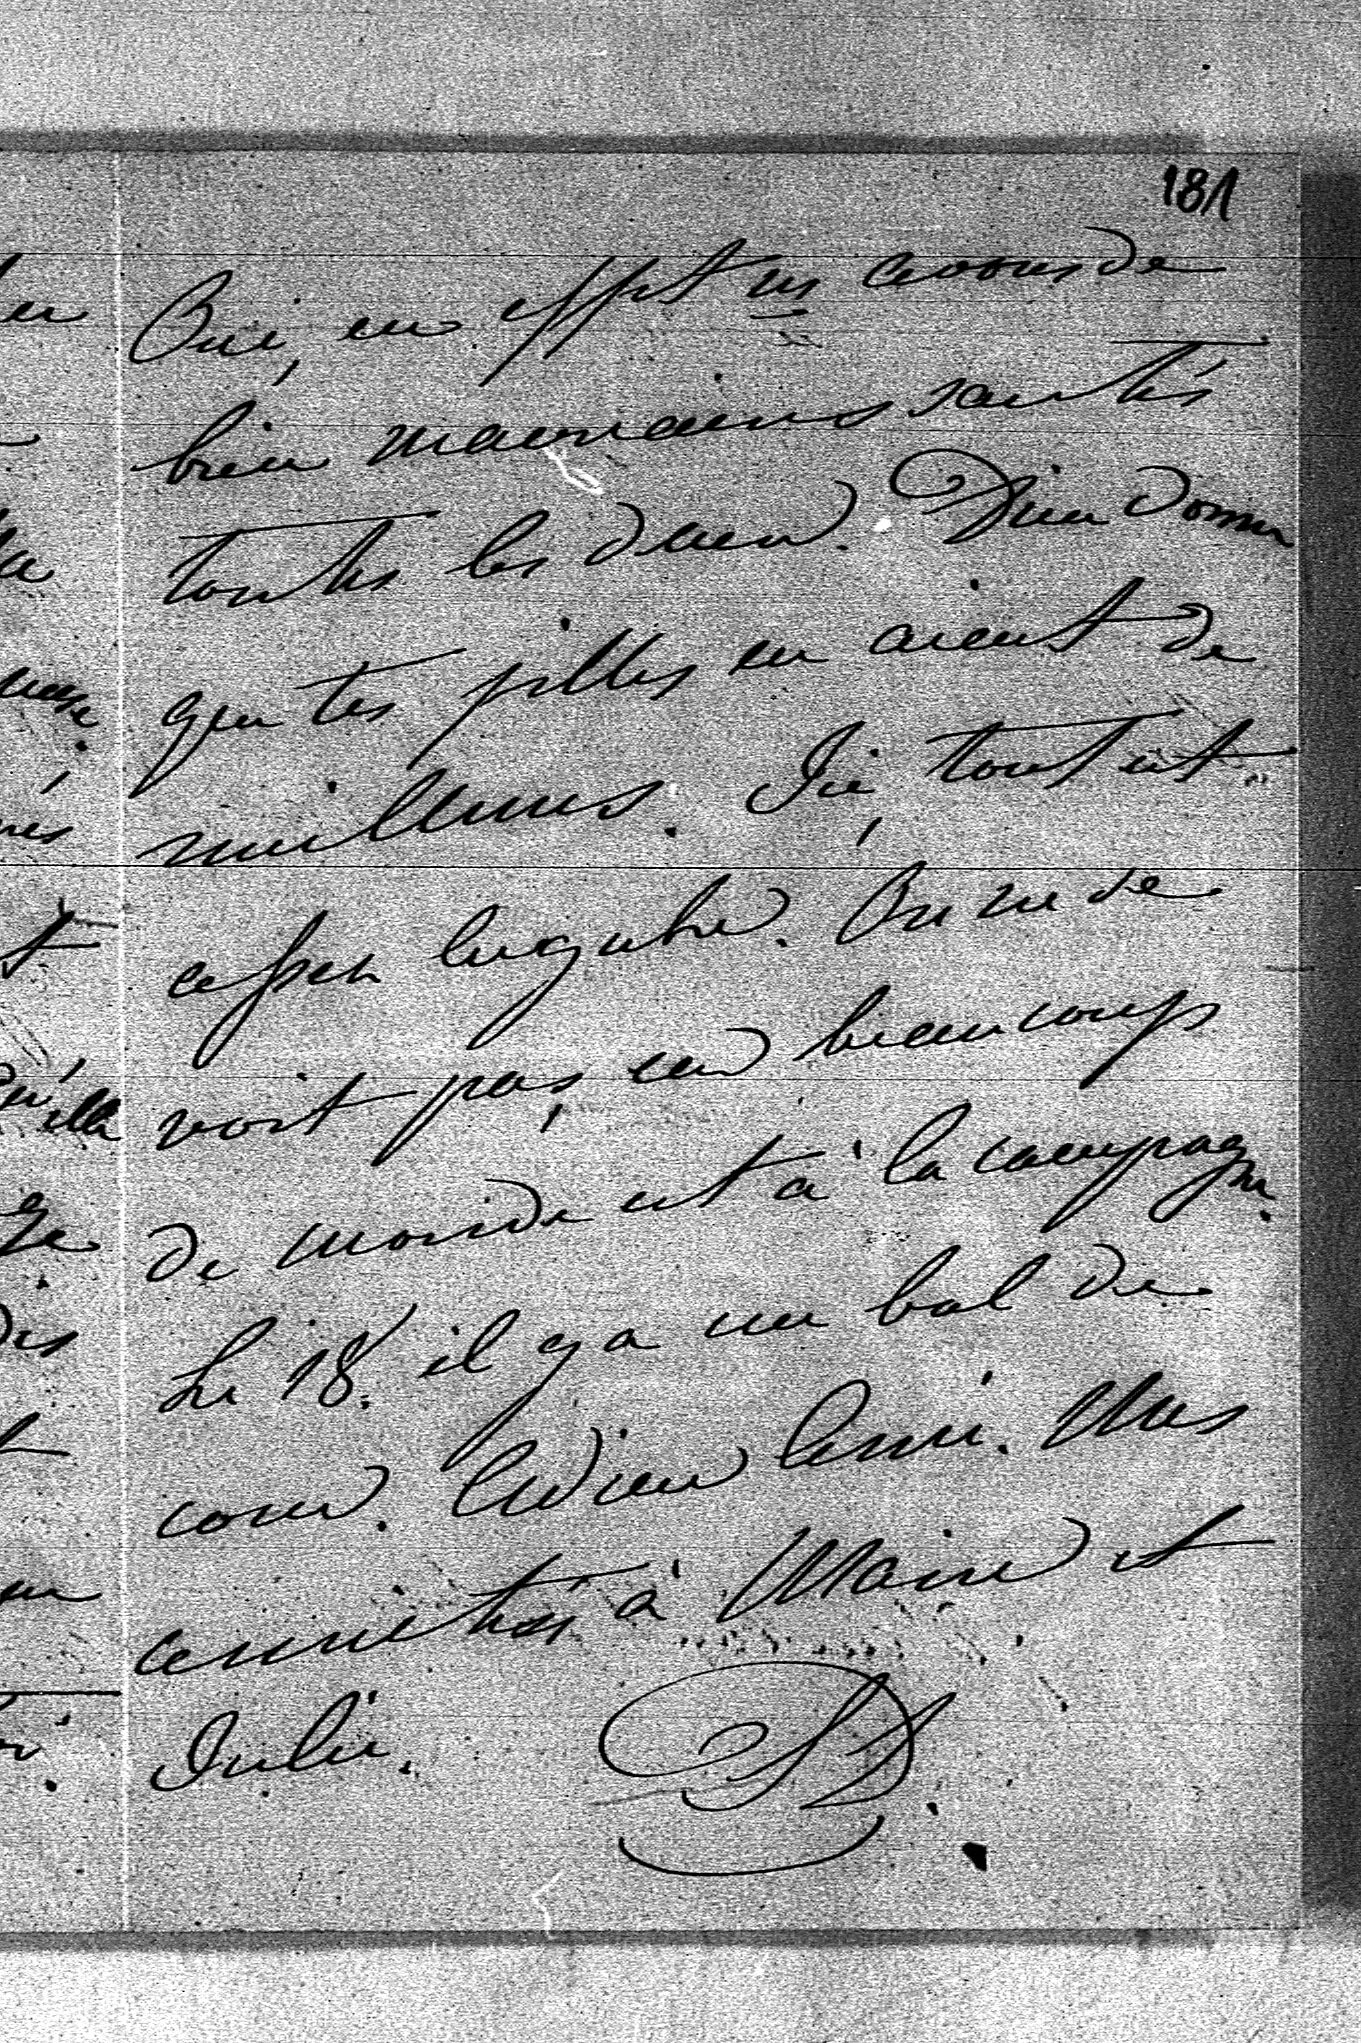 181
Oui, en effet ns avons de
bien mauvaises santés
toutes les deux. Dieu donne
que tes filles en aient de
meilleures. Ici, tout est
assez lugubre. On ne se
voit pas, car beaucoup
de monde est à la campagne.
Le 18. il y a un bal de
cour. Adieu Mes
amitiés à Marie et
Julie.